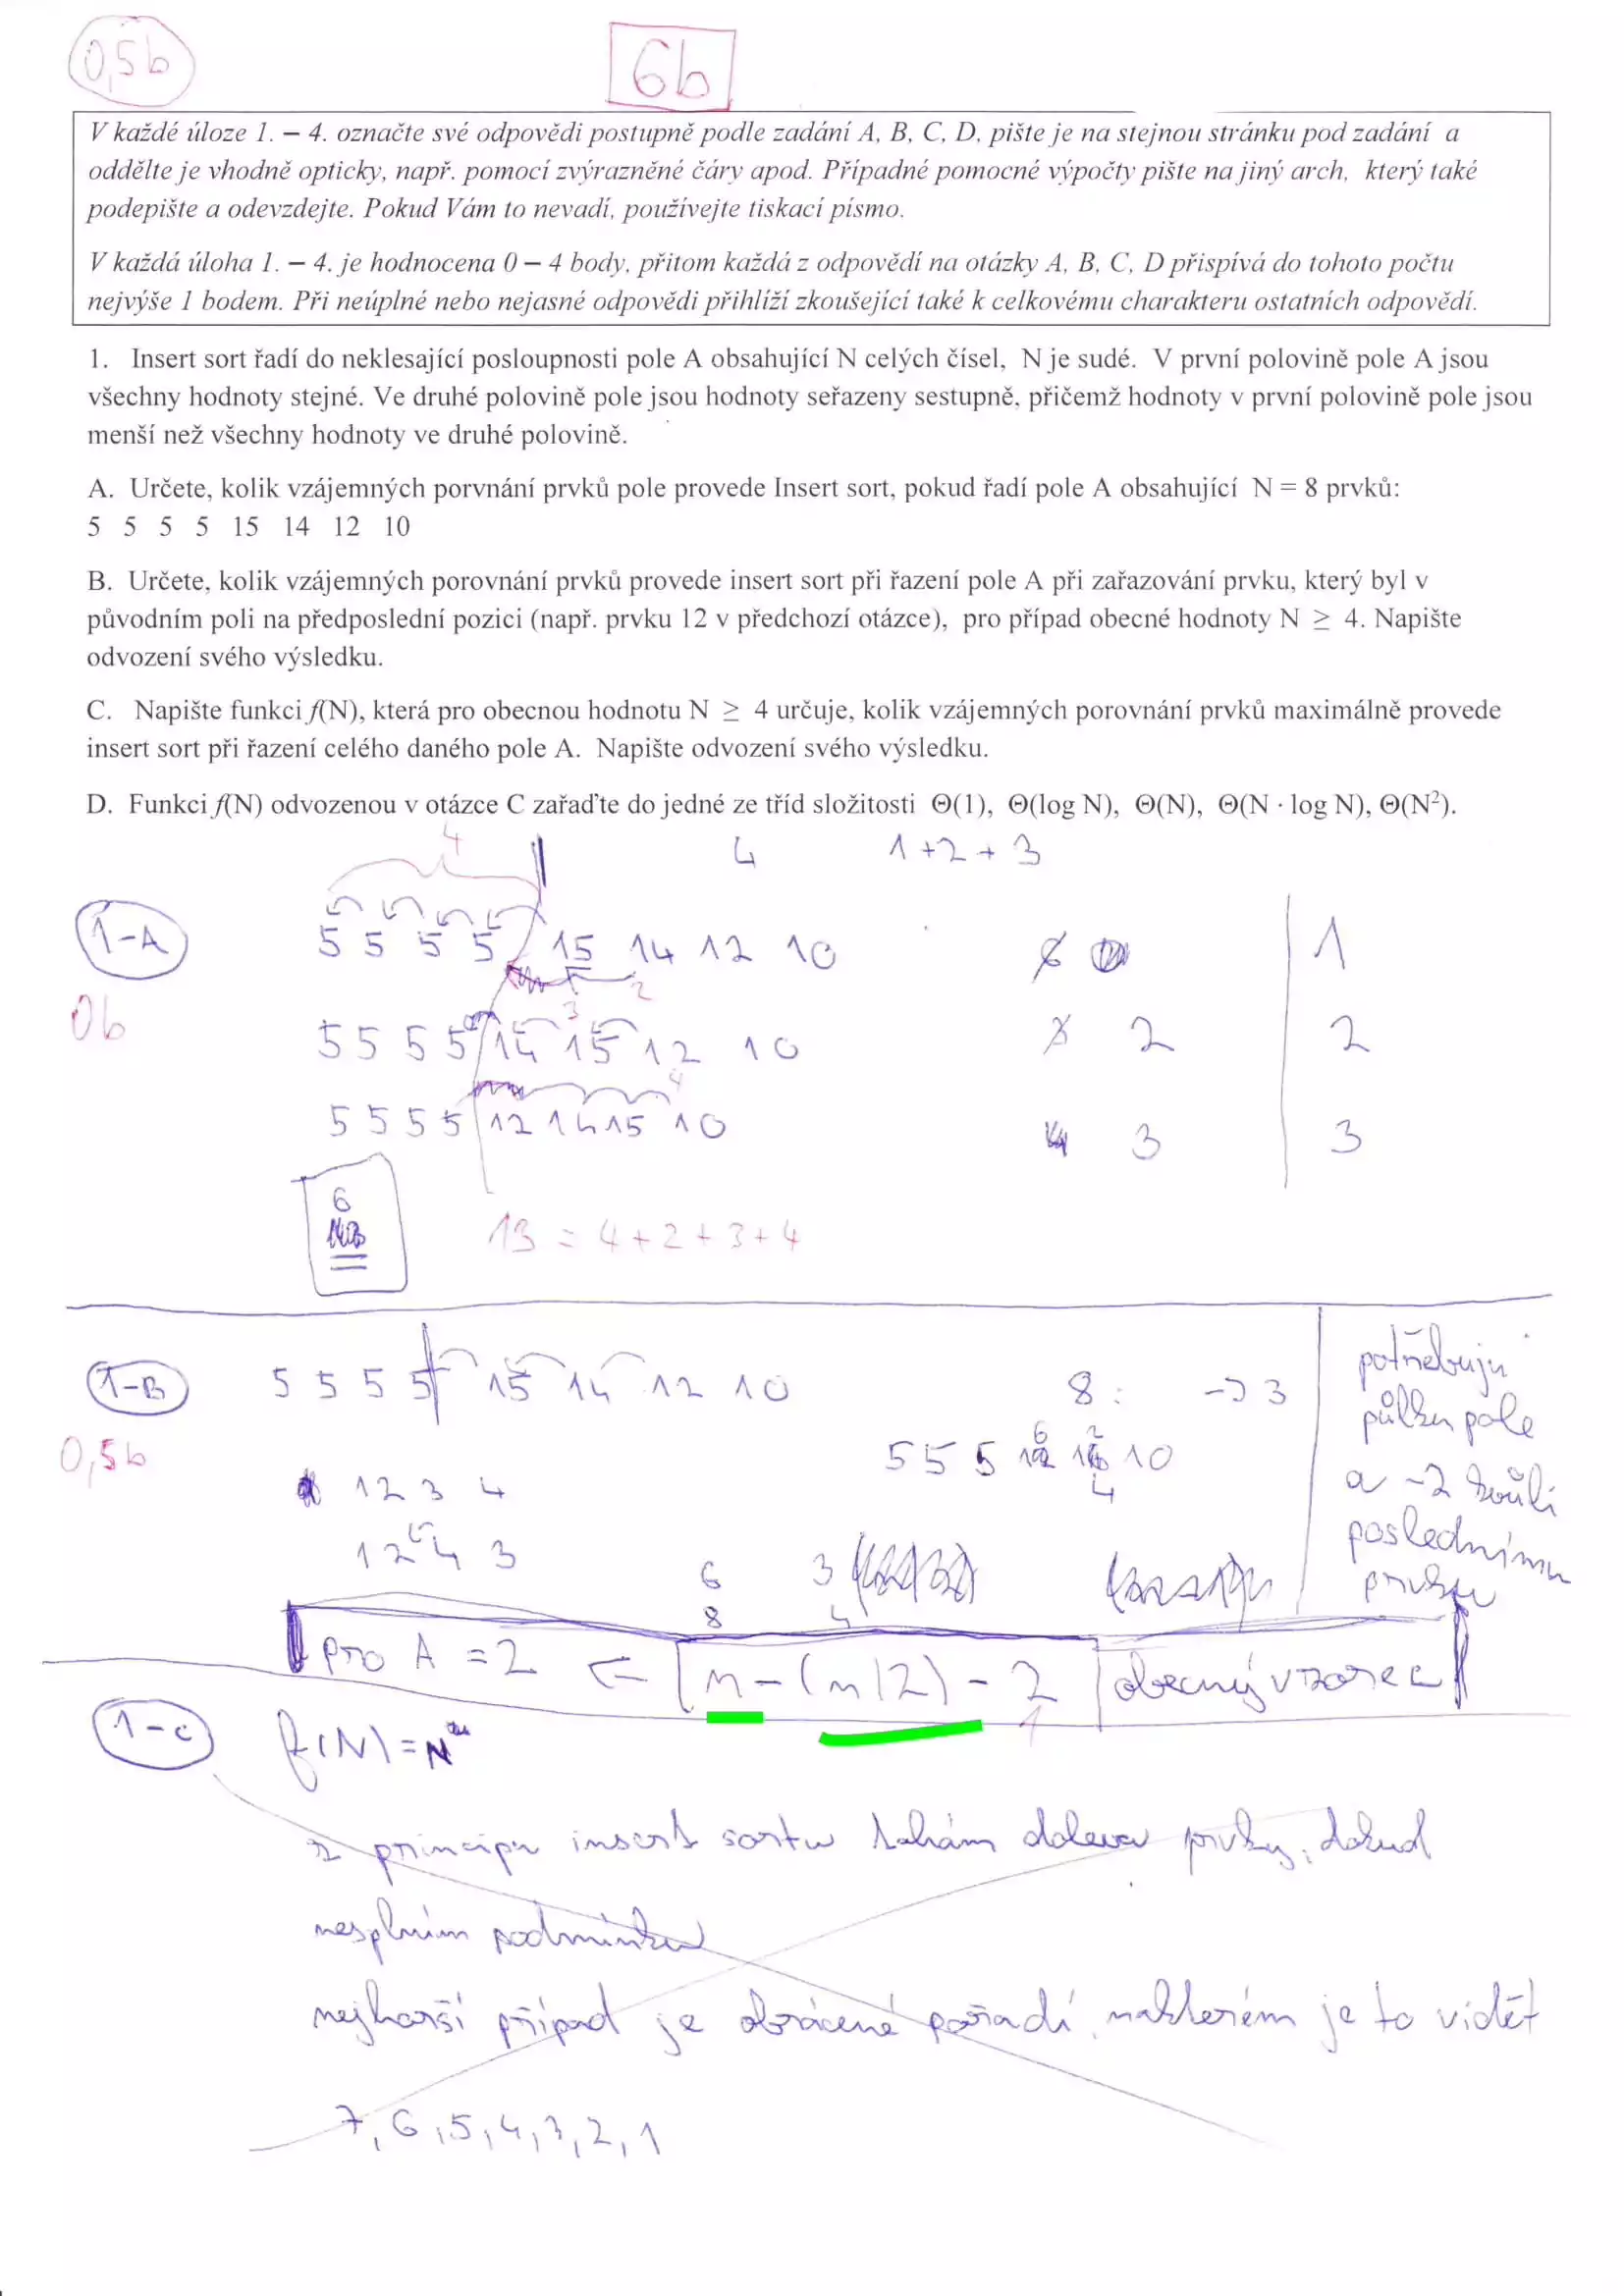 0,5b
6b
V každé úloze 1. – 4. označte své odpovědi postupně podle zadání A, B, C, D, pište je na stejnou stránku pod zadání a
oddělte je vhodně opticky, např. pomocí zvýrazněné čáry apod. Případné pomocné výpočty pište na jiný arch, který také
podepište a odevzdejte. Pokud Vám to nevadí, používejte tiskací písmo.
V každá úloha 1. – 4. je hodnocena 0 – 4 body, přitom každá z odpovědí na otázky A, B, C, D přispívá do tohoto počtu
nejvýše 1 bodem. Při neúplné nebo nejasné odpovědi přihlíží zkoušející také k celkovému charakteru ostatních odpovědí.
1. Insert sort řadí do neklesající posloupnosti pole A obsahující N celých čísel, N je sudé. V první polovině pole A jsou
všechny hodnoty stejné. Ve druhé polovině pole jsou hodnoty seřazeny sestupně, přičemž hodnoty v první polovině pole jsou
menší než všechny hodnoty ve druhé polovině.
A. Určete, kolik vzájemných porvnání prvků pole provede Insert sort, pokud řadí pole A obsahující N = 8 prvků:
5 5 5 5 15 14 12 10
B. Určete, kolik vzájemných porovnání prvků provede insert sort při řazení pole A při zařazování prvku, který byl v
původním poli na předposlední pozici (např. prvku 12 v předchozí otázce), pro případ obecné hodnoty N ≥ 4. Napište
odvození svého výsledku.
C. Napište funkci f(N), která pro obecnou hodnotu N ≥ 4 určuje, kolik vzájemných porovnání prvků maximálně provede
insert sort při řazení celého daného pole A. Napište odvození svého výsledku.
D. Funkci f(N) odvozenou v otázce C zařaďte do jedné ze tříd složitosti Θ(1), Θ(log N), Θ(N), Θ(N · log N), Θ(N²).
4 4 1+2+3
1-A 5 5 5 5 15 14 12 10 1
2
0b
3
5 5 5 5 14 15 12 10 2 2
4
5 5 5 5 12 14 15 10 3 3
6
13 = 4+2+3+4
1-B 5 5 5 5 15 14 12 10 8: -> 3
potřebuju
půlku pole
a -2 kvůli
poslednímu
prvku
0,5b
5 5 5 10
1 2 3 4
4
1 2 4 3
6 3
8 4
pro A = 2 <= n - (n/2) - 2 obecný vzorec
1
1-C f(N) = N
z principu insert sortu tahám doleva prvky, dokud
nesplním podmínku
nejhorší případ je obrácené pořadí, na kterém je to vidět
7, 6, 5, 4, 3, 2, 1